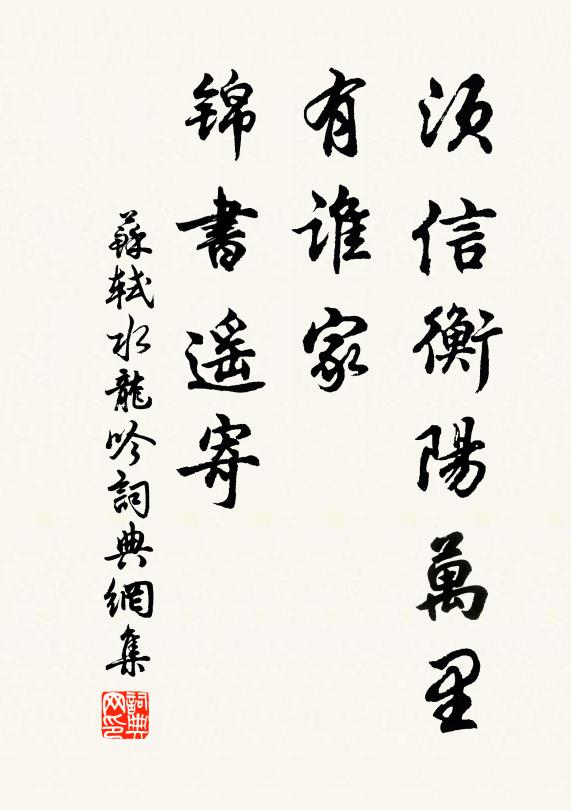 须信衡陽萬里
有谁家
锦書遥寄
蘇軾水龍吟詞典網集
詞典
网印